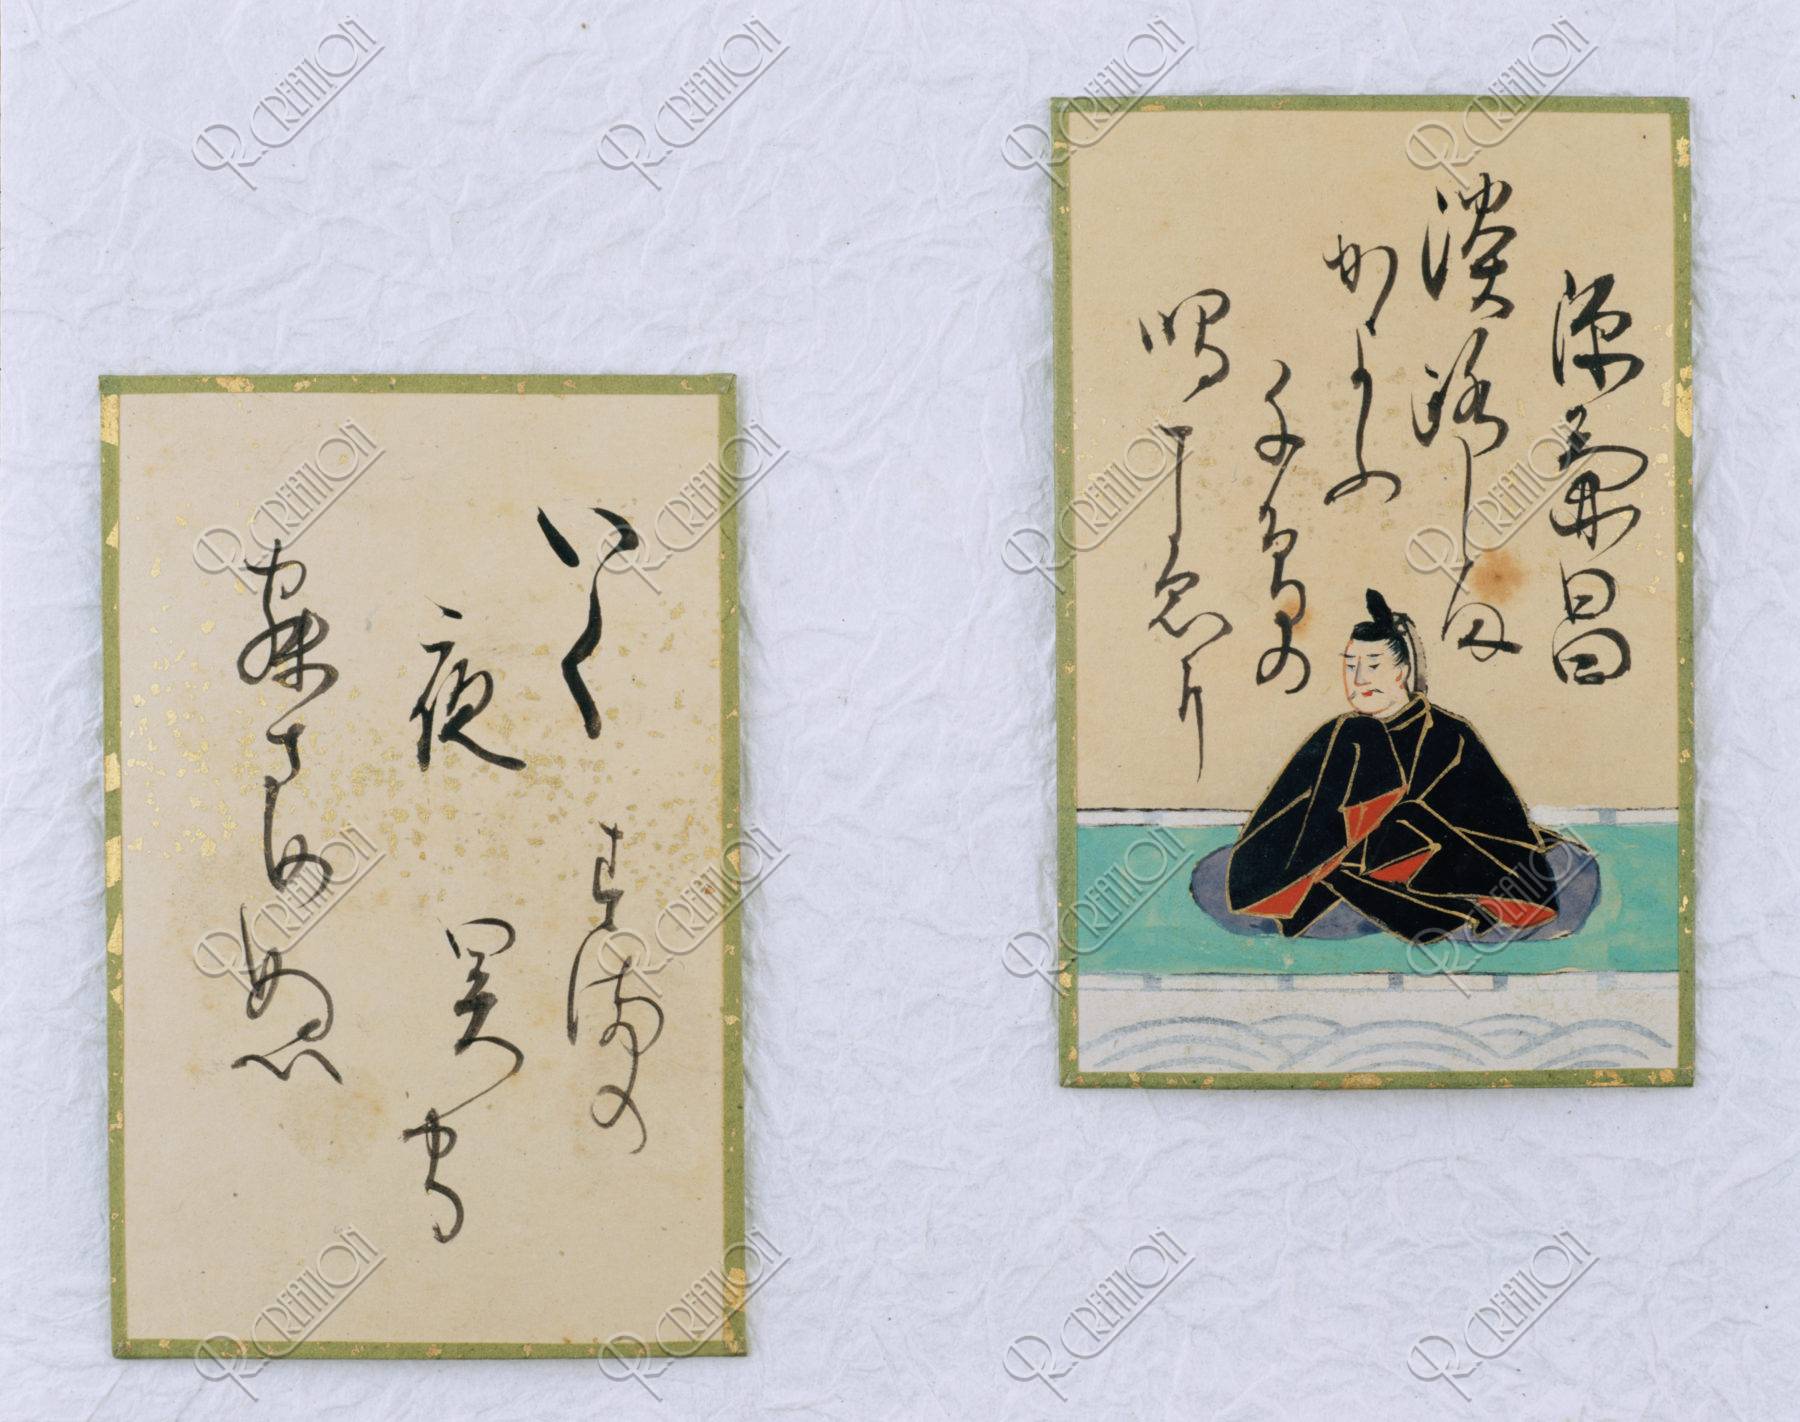 源兼昌
淡路しま
かよふ
千鳥の
鳴こゑに
いく
夜
寐さめぬ
すまの
関守